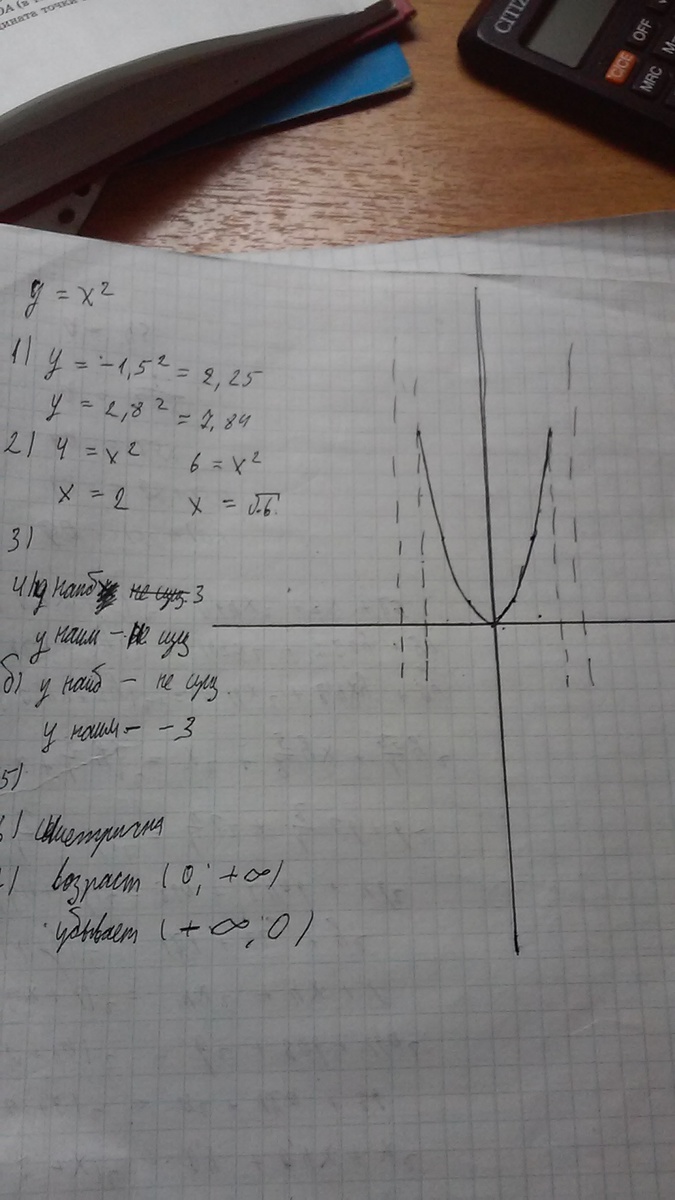 ОА (в
дината точки
CITIZ
OFF
C/CE
MRC
M-
y = x²
1) y = -1,5² = 2,25
y = 2,8² = 7,84
2) 4 = x² 6 = x²
x = 2 x = √6
3)
4) y наиб 3
y наим - не сущ
б) y наиб - не сущ
y наим - -3
5)
) симетрична
) возраст (0; +∞)
убывает (+∞; 0)